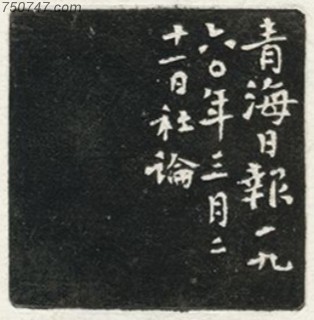 750747.com
青海日報一九
六〇年三月二
十一日社論